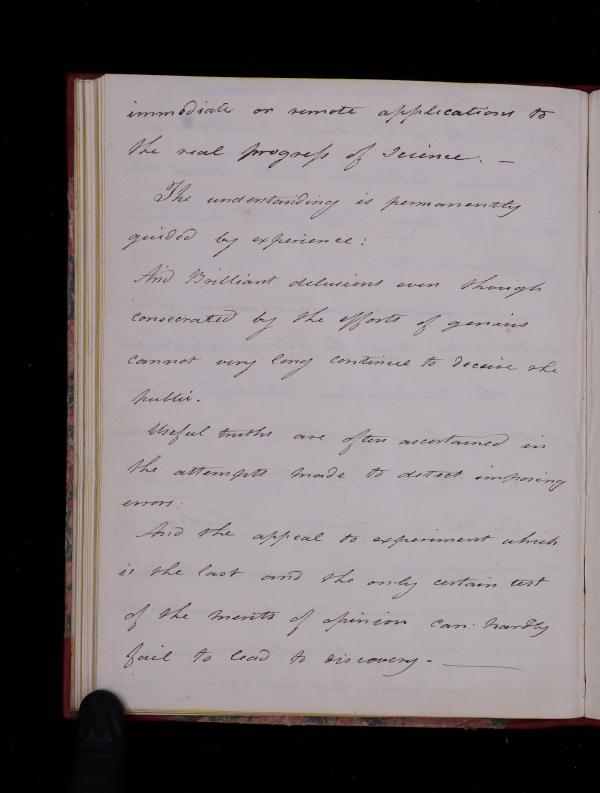 immediate or remote applications to
the real progress of Science. —
The understanding is permanently
guided by experience:
And Brilliant delusions even though
consecrated by the efforts of genius
cannot very long continue to deceive the
public.
Useful truths are often ascertained in
the attempts made to detect imposing
errors:
And the appeal to experiment which
is the last and the only certain test
of the merits of opinion can hardly
fail to lead to discovery. —